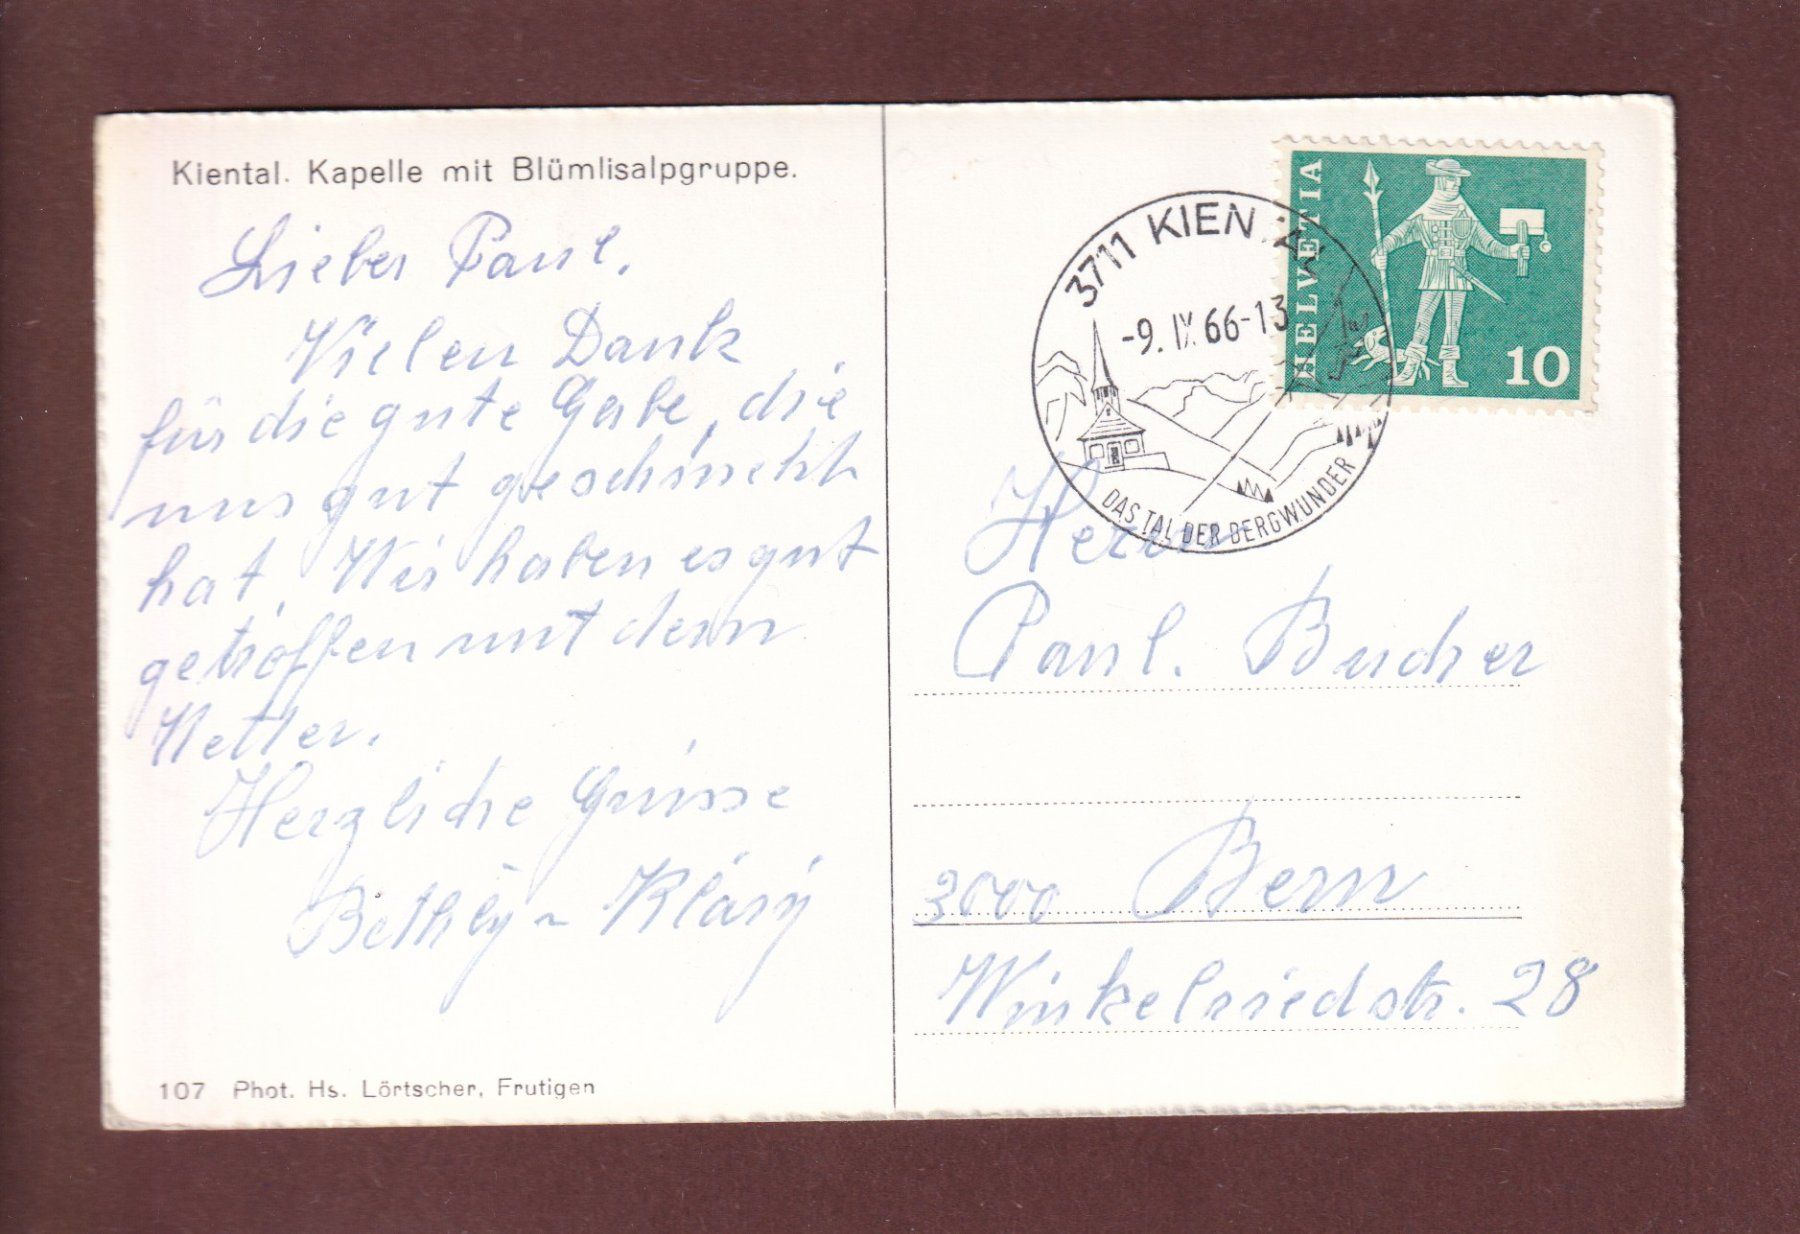 Kiental. Kapelle mit Blümlisalpgruppe.
Lieber Paul.
Vielen Dank
für die gute Gabe, die
uns gut geschmeckt
hat. Wir haben es gut
getroffen mit dem
Wetter.
Herzliche Grüsse
Bethly - Kläry
107 Phot. Hs. Lörtscher, Frutigen
3711 KIENTAL
-9. IX. 66-13
DAS TAL DER BERGWUNDER
HELVETIA
10
Herrn
Paul. Bucher
3000 Bern
Winkelriedstr. 28